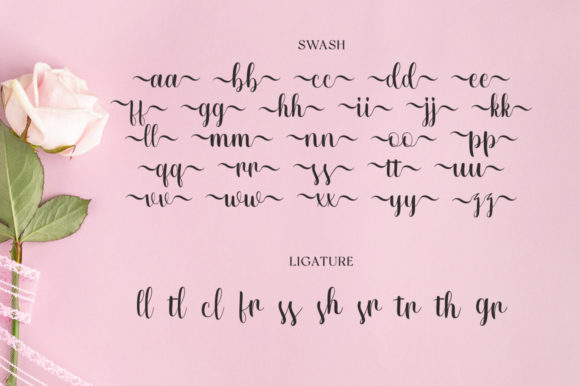 SWASH
aa bb cc dd ee
ff gg hh ii jj kk
ll mm nn oo pp
qq rr ss tt uu
vv ww xx yy zz
LIGATURE
ll tl cl fr ss sh sr tr th gr